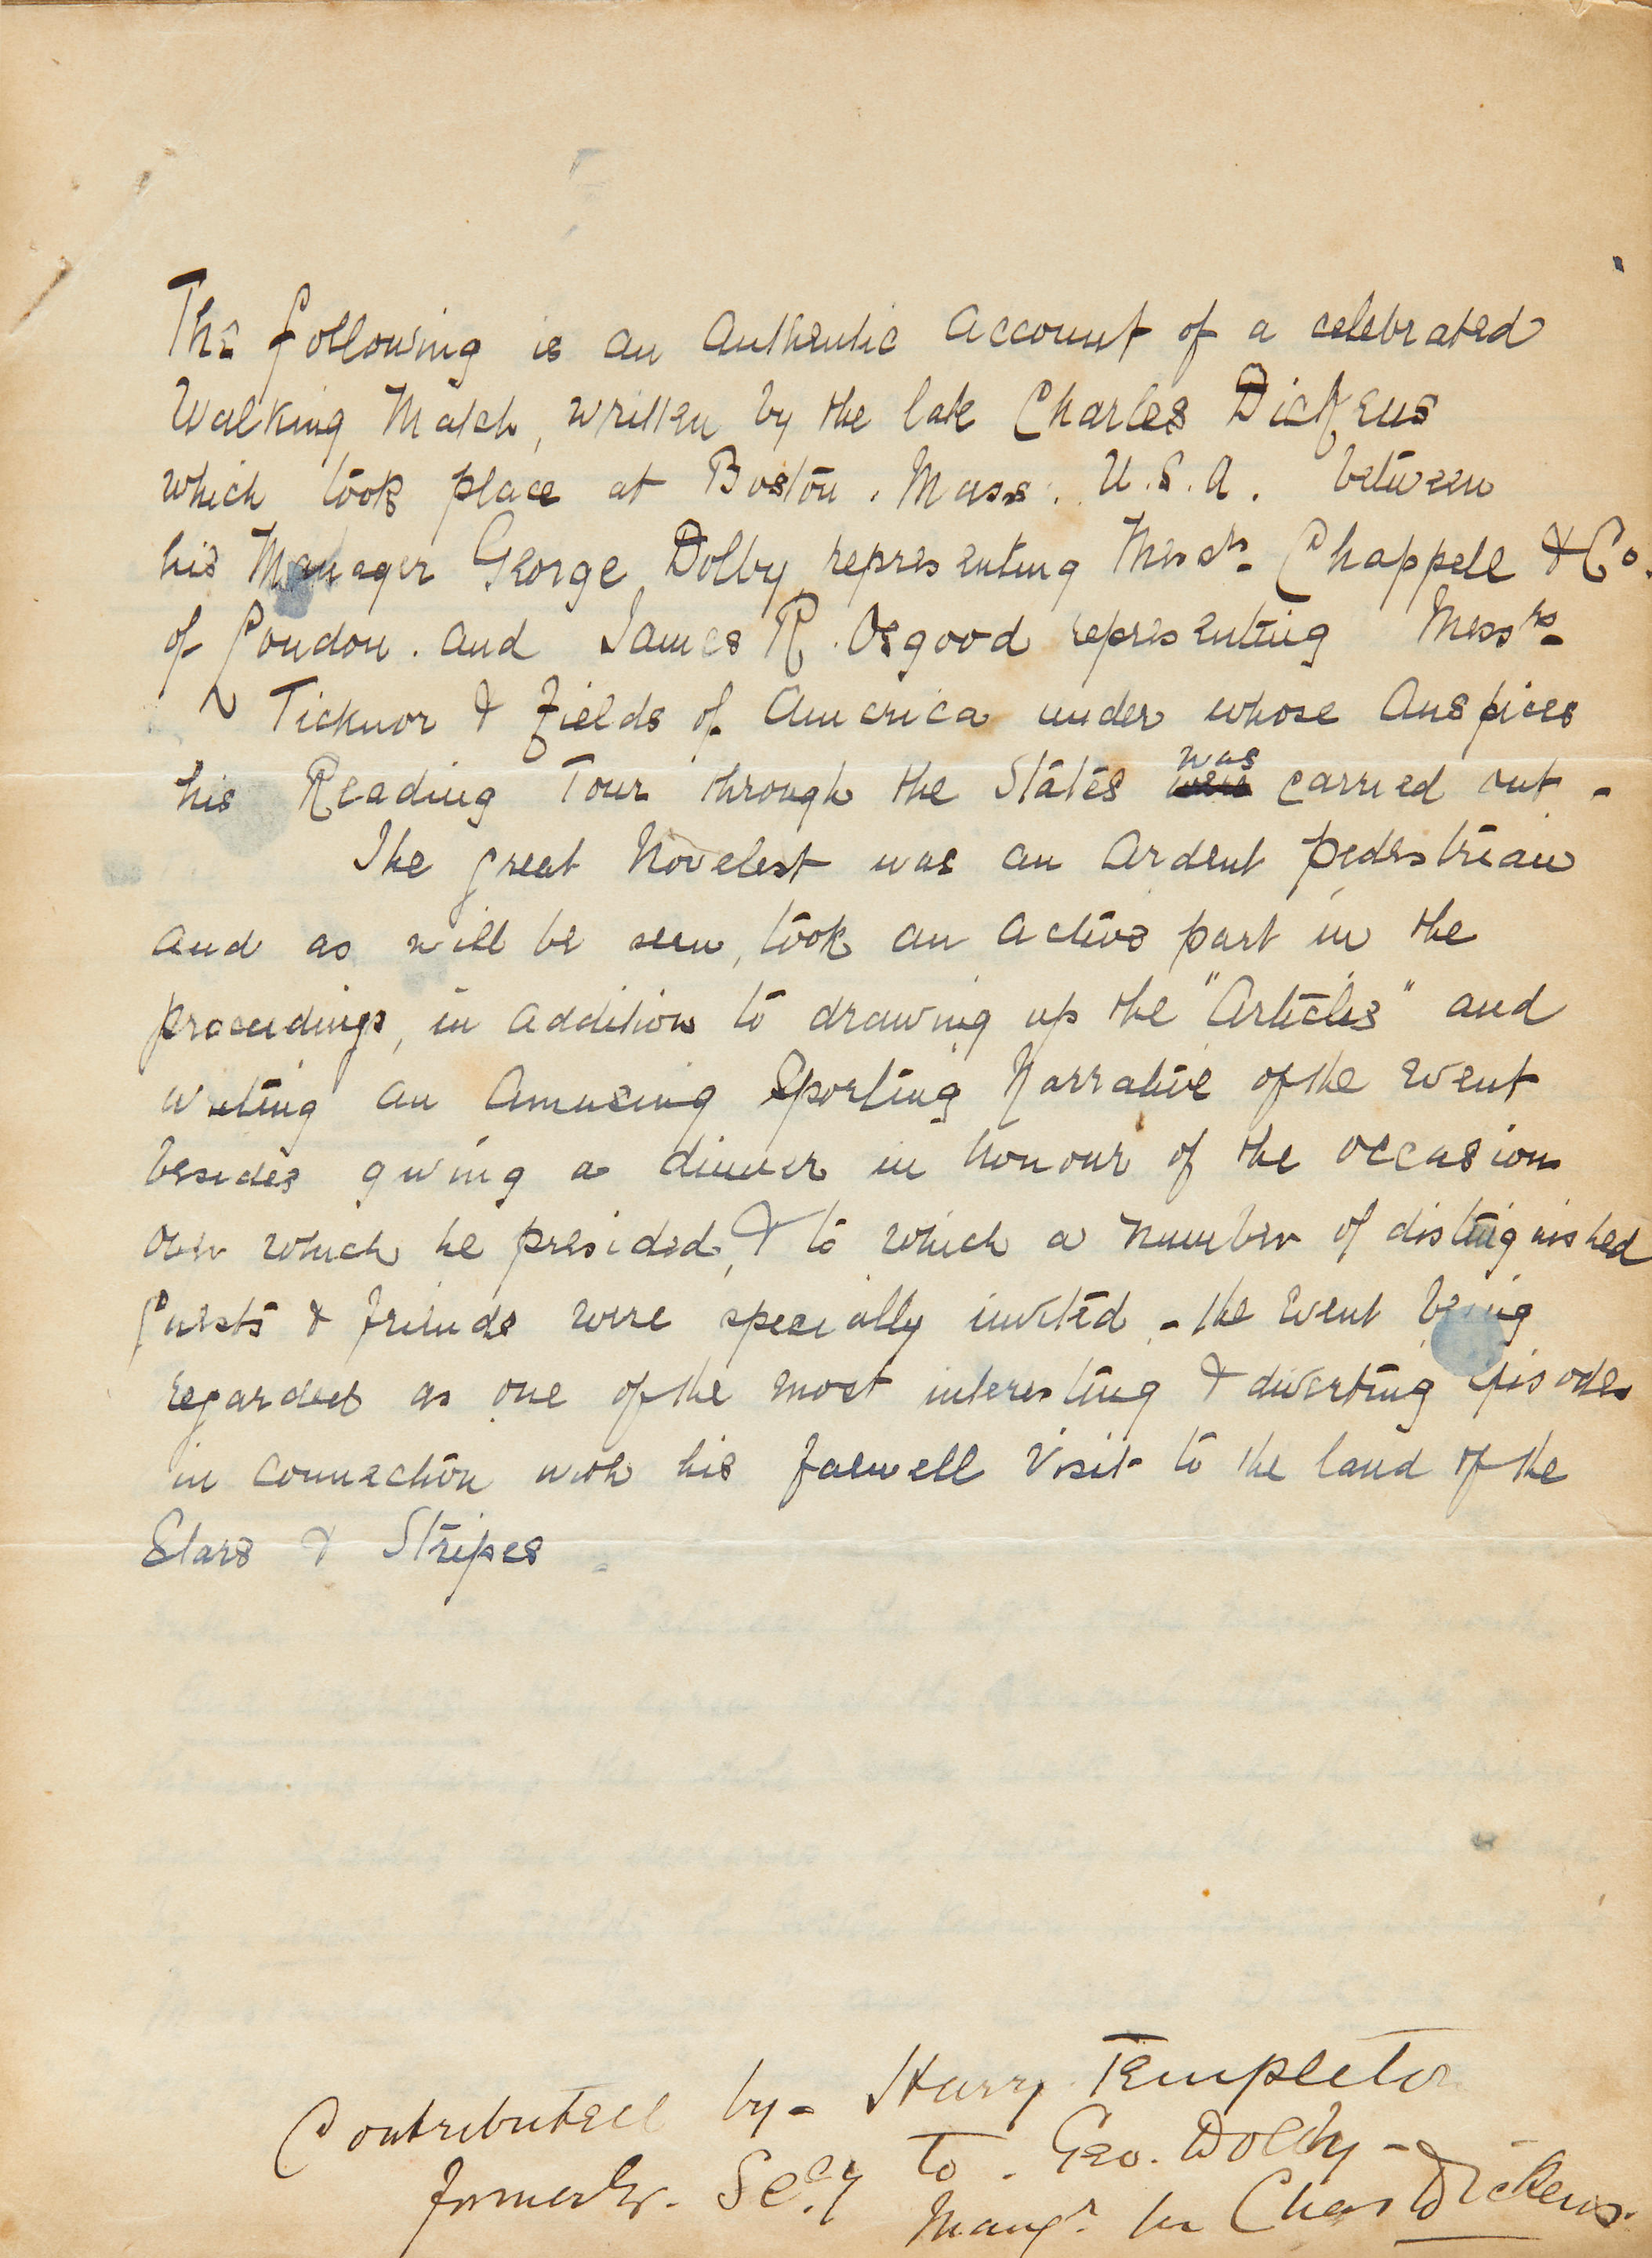 The following is an Authentic Account of a celebrated
Walking Match, written by the late Charles Dickens
which took place at Boston. Mass. U.S.A. between
his Manager George Dolby representing Messrs. Chappell & Co.
of London. and James R. Osgood representing Messrs.
~ Ticknor & Fields of America under whose Auspices
his Reading Tour through the States was carried out -
The great Novelest was an Ardent pedestrian
and as will be seen, took an active part in the
proceedings, in addition to drawing up the "Articles" and
writing an Amusing Sporting Narrative of the event
besides giving a dinner in honour of the occasion
over which he presided, & to which a number of distinguished
Guests & friends were specially invited - the event being
regarded as one of the most interesting & diverting episodes
in connection with his farewell visit to the land of the
Stars & Stripes
Contributed by - Harry Templeton
formerly. Secy to. Geo. Dolby -
Mangr. for Chas Dickens.